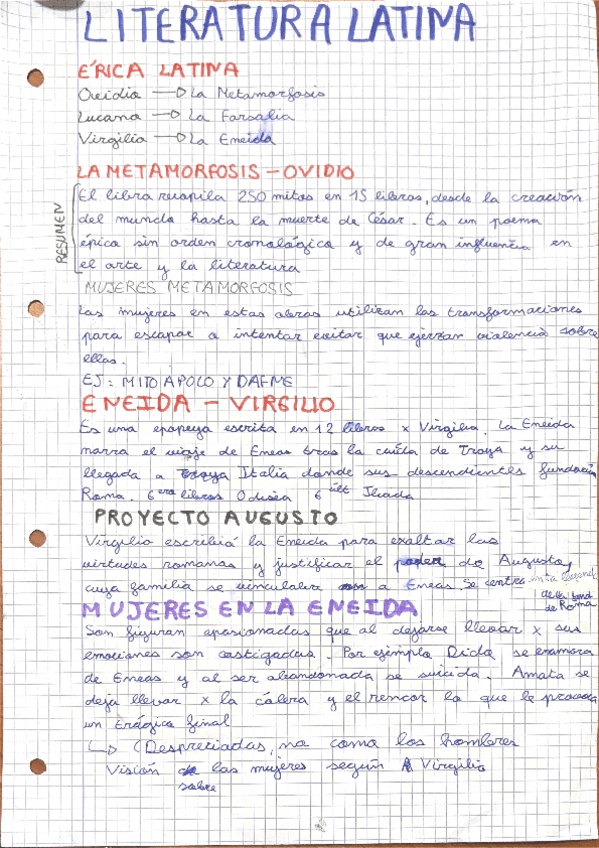 LITERATURA LATINA
ÉRICA LATINA
Ovidio → La Metamorfosis
Lucano → La Farsalia
Virgilio → La Eneida
LA METAMORFOSIS - OVIDIO
RESUMEN
El libro recopila 250 mitos en 15 libros, desde la creación
del mundo hasta la muerte de César. Es un poema
épico sin orden cronológica y de gran influencia en
el arte y la literatura
MUJERES METAMORFOSIS
Las mujeres en estas obras utilizan las transformaciones
para escapar o intentar evitar que ejerzan violencia sobre
ellas.
EJ: MITO APOLO Y DAFNE
ENEIDA - VIRGILIO
Es una epopeya escrita en 12 libros x Virgilio. La Eneida
narra el viaje de Eneas tras la caída de Troya y su
llegada a Troya Italia donde sus descendientes fundarán
Roma. 6 eros libros Odisea 6 últ Iliada
PROYECTO AUGUSTO
Virgilio escribió la Eneida para exaltar las
virtudes romanas y justificar el poder de Augusto,
cuya familia se vinculaba a Eneas. Se centra en la leyend
de la fund
de Roma
MUJERES EN LA ENEIDA
Son figuran apasionadas que al dejarse llevar x sus
emociones son castigadas. Por ejemplo Dido se enamora
de Eneas y al ser abandonada se suicida. Amata se
deja llevar x la cólera y el rencor lo que le provoca
un trágico final
↳ (Despreciadas, no como los hombres
Visión de las mujeres según Virgilio
sobre